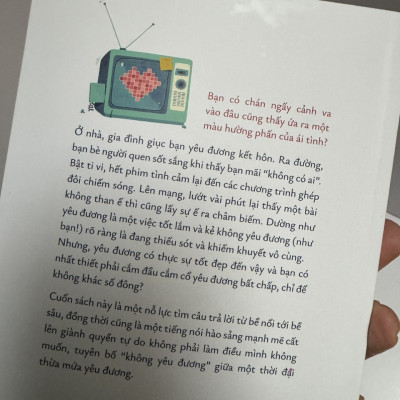 Bạn có chán ngấy cảnh va
vào đâu cũng thấy ứa ra một
màu hường phấn của ái tình?
Ở nhà, gia đình giục bạn yêu đương kết hôn. Ra đường,
bạn bè người quen sốt sắng khi thấy bạn mãi “không có ai”.
Bật ti vi, hết phim tình cảm lại đến các chương trình ghép
đôi chiếm sóng. Lên mạng, lướt vài phút lại thấy một bài
không than ế thì cũng lấy sự ế ra châm biếm. Dường như
yêu đương là một việc tốt lắm và kẻ không yêu đương (như
bạn!) rõ ràng là đang thiếu sót và khiếm khuyết vô cùng.
Nhưng, yêu đương có thực sự tốt đẹp đến vậy và bạn có
nhất thiết phải cắm đầu cắm cổ yêu đương bất chấp, chỉ để
không khác số đông?
Cuốn sách này là một nỗ lực tìm câu trả lời từ bề nổi tới bề
sâu, đồng thời cũng là một tiếng nói hào sảng mạnh mẽ cất
lên giành quyền tự do không phải làm điều mình không
muốn, tuyên bố “không yêu đương” giữa một thời đại
thừa mứa yêu đương.